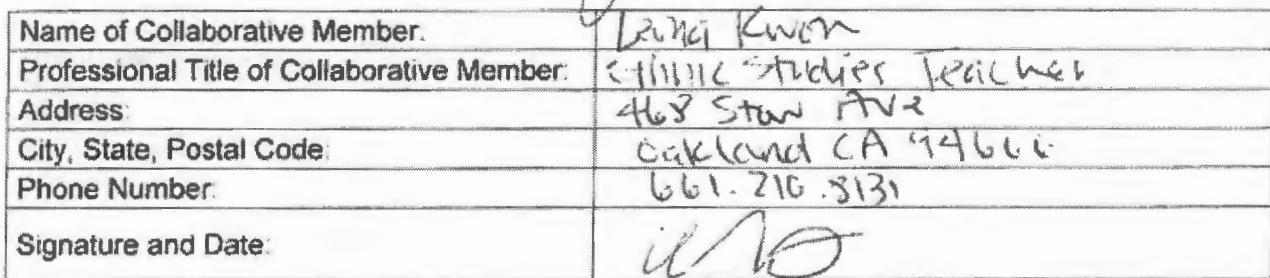 Name of Collaborative Member: Kwon
Professional Title of Collaborative Member: Ethnic Studies Teacher
Address: 468 Ave
City, State, Postal Code: Oakland CA
Phone Number: 661.
Signature and Date: